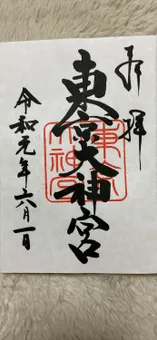 奉拝
東京大神宮
令和元年六月一日
東京
大神宮